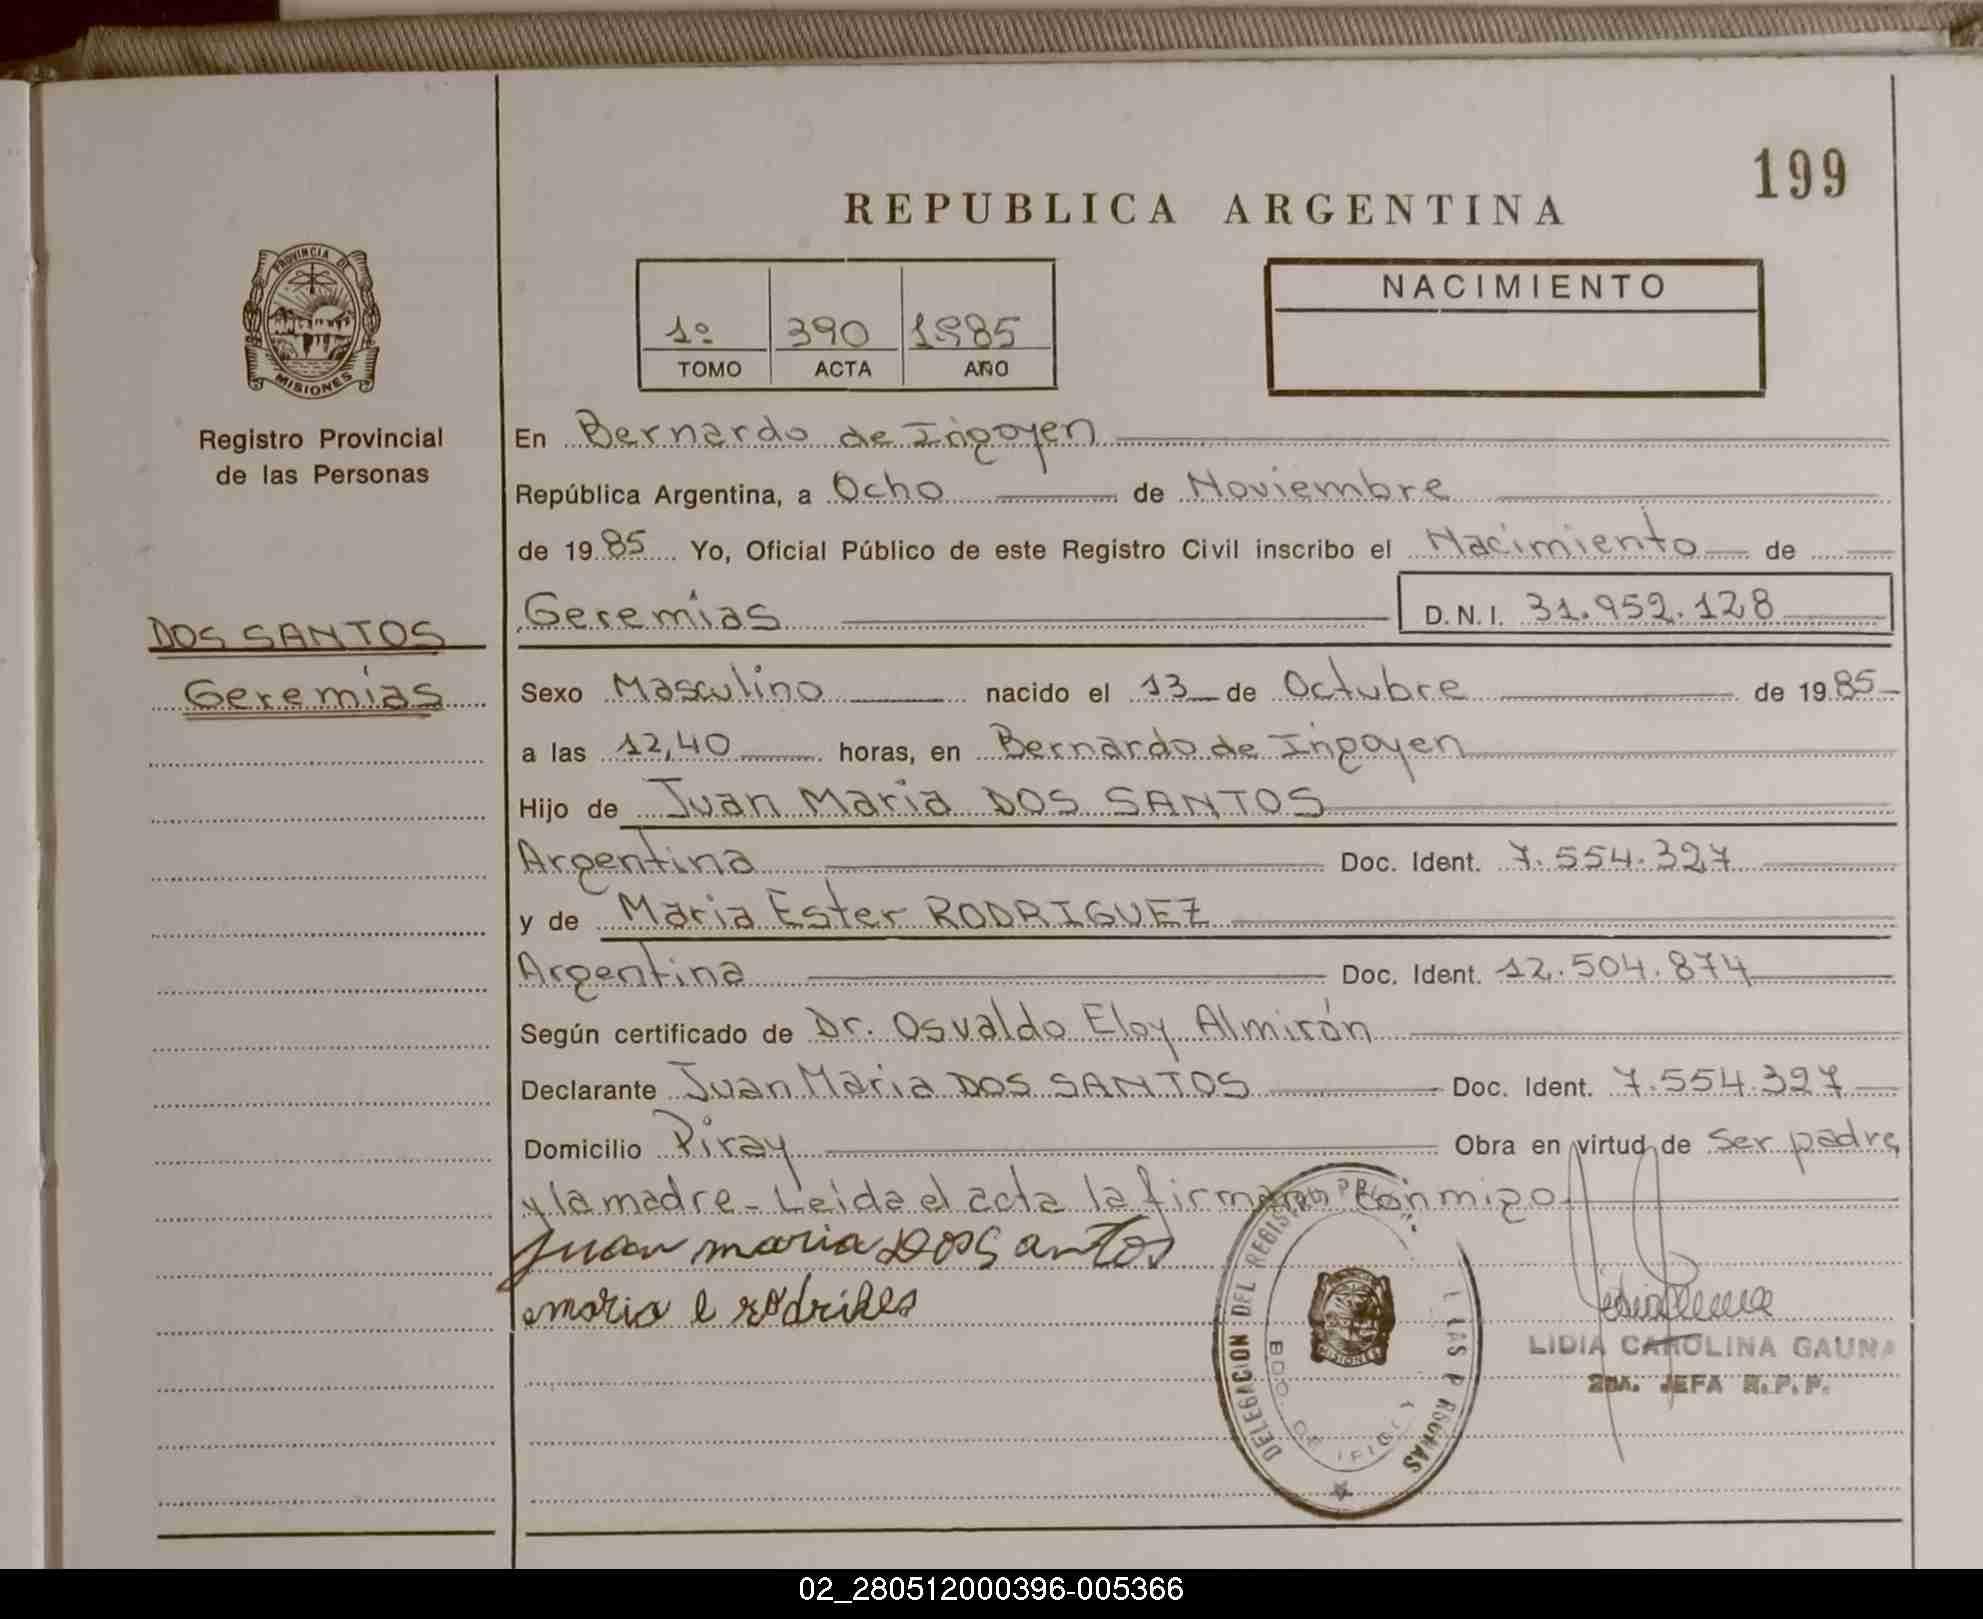 199
REPUBLICA ARGENTINA
PROVINCIA DE
MISIONES
Registro Provincial
de las Personas
1º 390 1985
TOMO ACTA AÑO
NACIMIENTO
En Bernardo de Irigoyen
República Argentina, a Ocho de Noviembre
de 1985 Yo, Oficial Público de este Registro Civil inscribo el Nacimiento de
Geremías D.N.I. 31.952.128
DOS SANTOS
Geremías
Sexo Masculino nacido el 13 de Octubre de 1985
a las 12,40 horas, en Bernardo de Irigoyen
Hijo de Juan Maria DOS SANTOS
Argentina Doc. Ident. 7.554.327
y de Maria Ester RODRIGUEZ
Argentina Doc. Ident. 12.504.874
Según certificado de Dr. Osvaldo Eloy Almirón
Declarante Juan Maria DOS SANTOS Doc. Ident. 7.554.327
Domicilio Piray Obra en virtud de Ser padre
y la madre - Leida el acta la firman conmigo
Juan maria DOS Santos
maria e rodrihes
DELEGACION DEL REGISTRO
LAS PERSONAS
BDO. DE IRIGOYEN
MISIONES
LIDIA CAROLINA GAUNA
2DA. JEFA R.P.P.
02_280512000396-005366